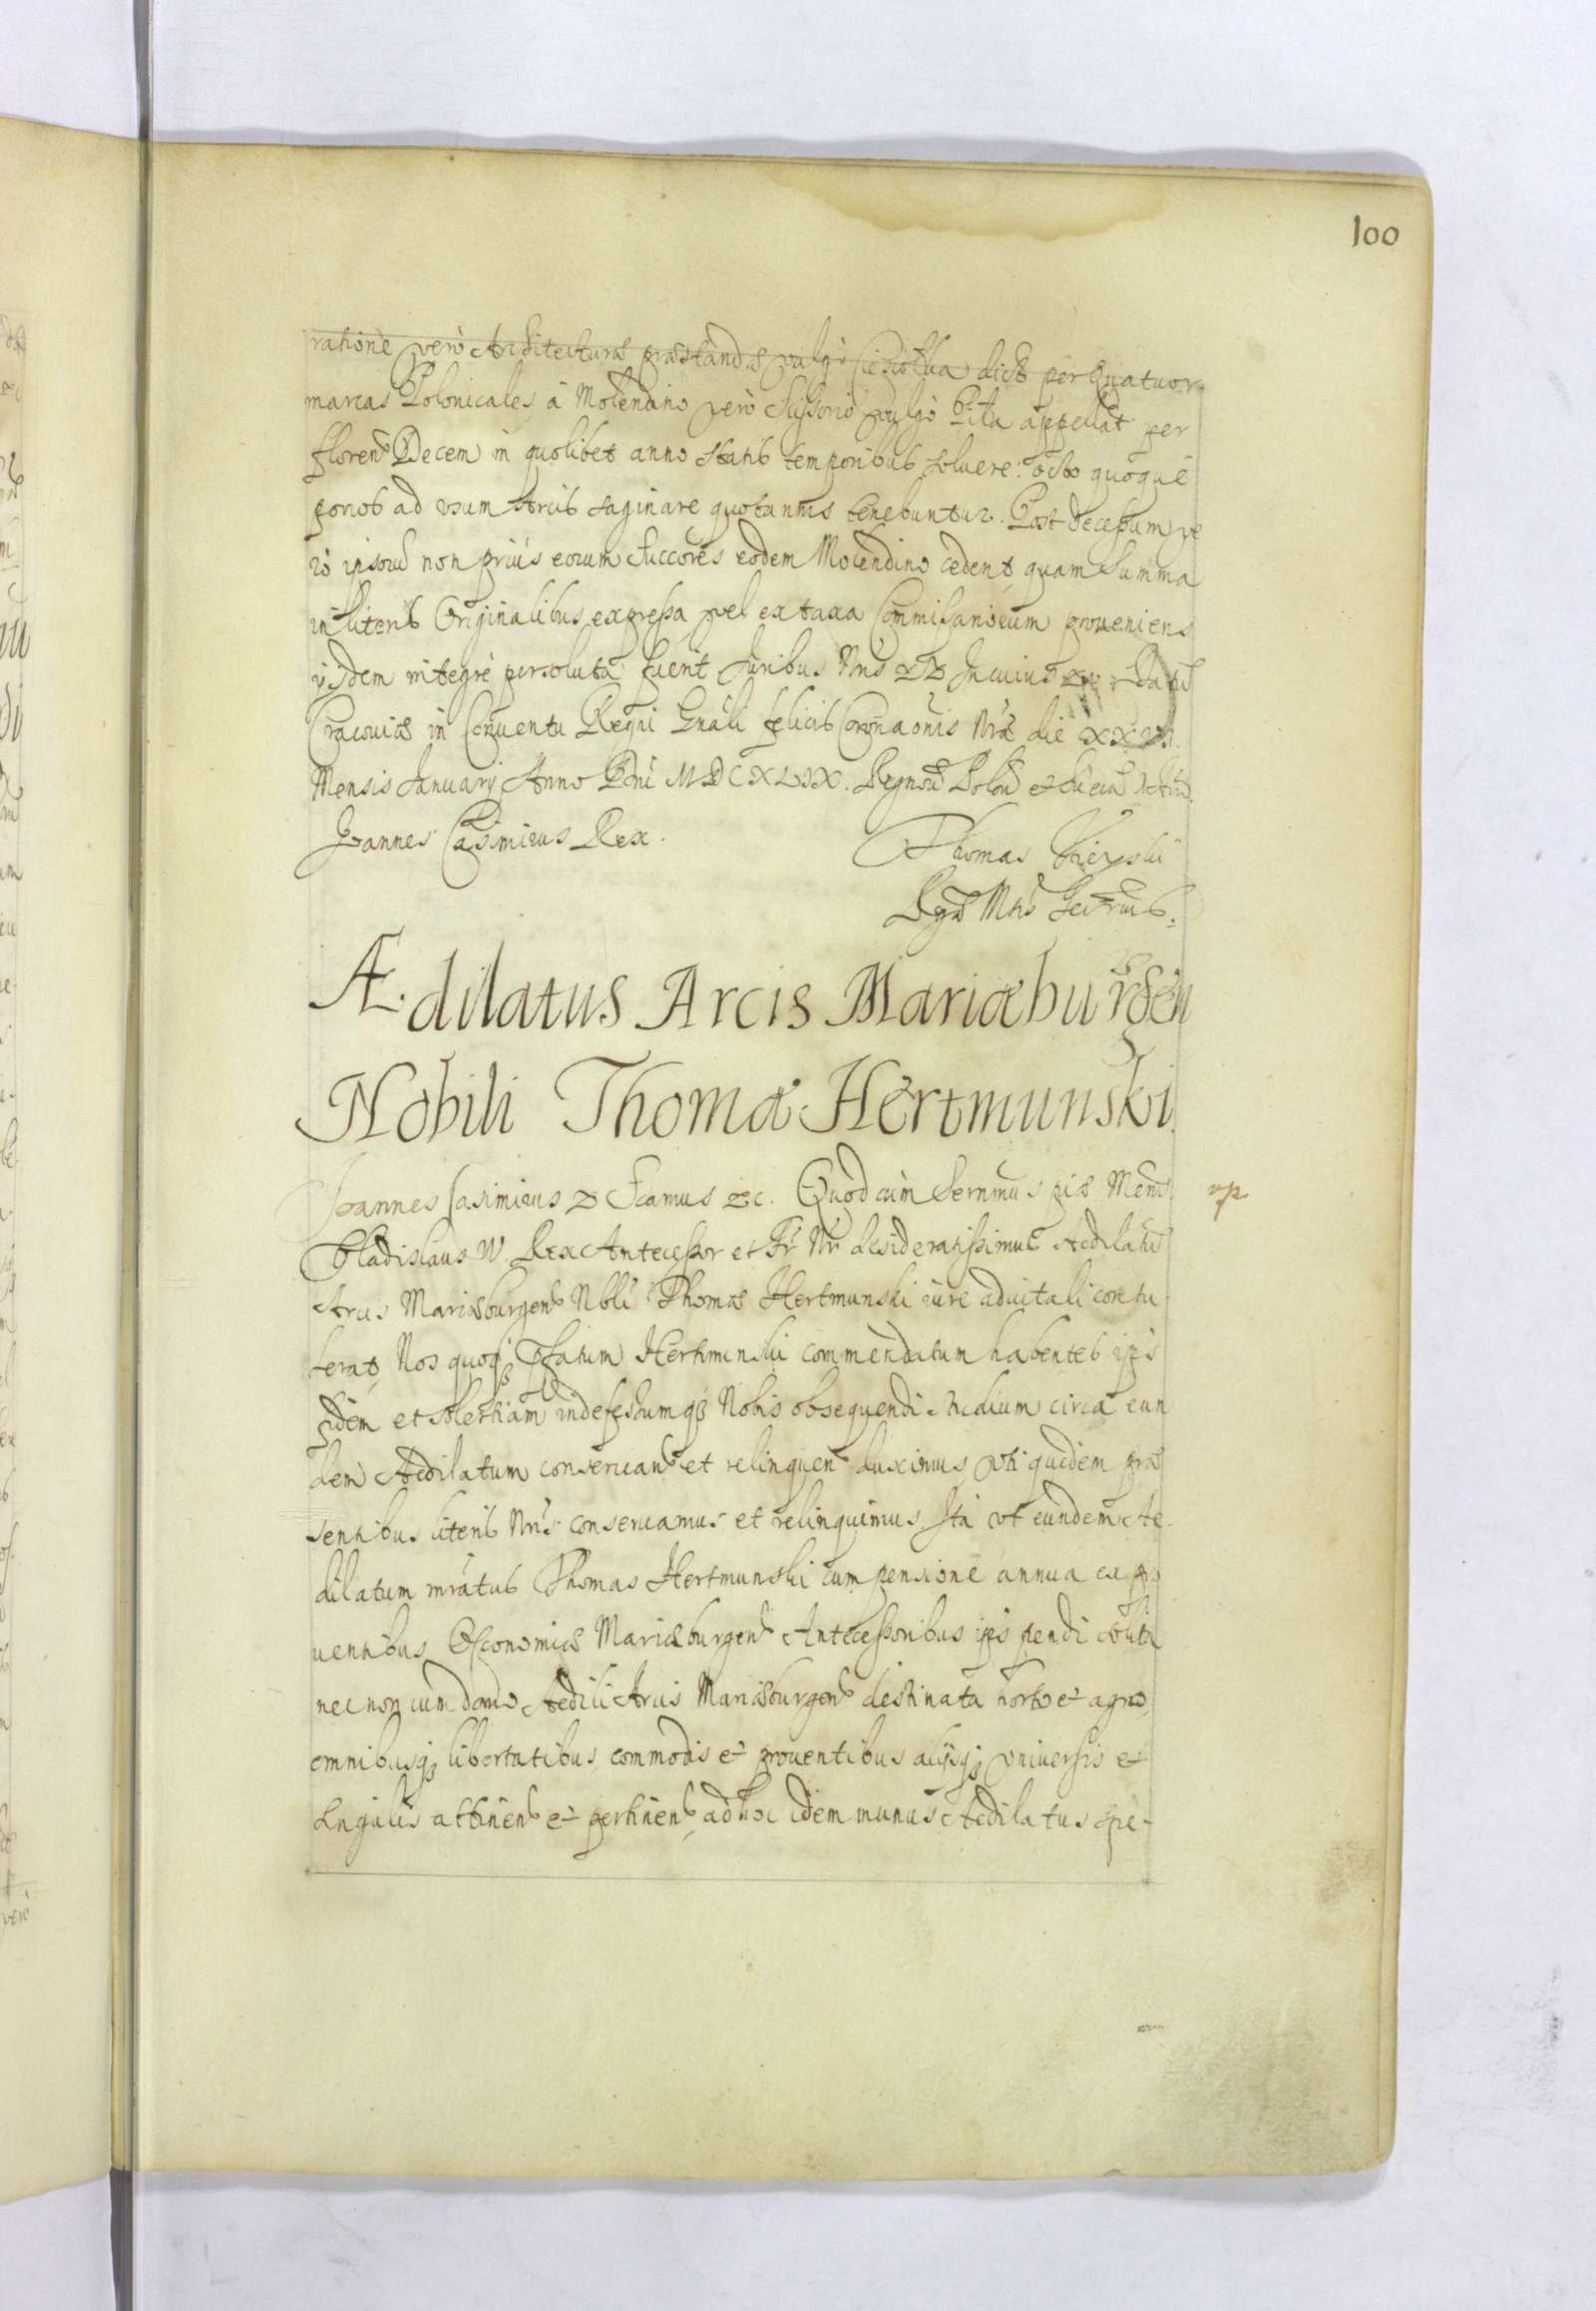 100
ratione verò Architecturæ præstandæ vulgò Ciesiołka dict. per Quatuor
marcas Polonicales, à Molendino verò scissorio vulgò Piła appellat. per
floren. Decem in quolibet anno statis temporibus soluere: octo quoque
porcos ad vsum Arcis saginare quotannis tenebuntur. Post decessum ve
rò ipsorū non priùs eorum succores eodem Molendino cedent, quam summa
in literis Originalibus expressa, vel ex taxa Commissariorum proueniens
ijsdem integrè persoluta fuerit Juribus Nris &c In cuius Datū
Cracouiæ in Conuentu Regni Gnali felicis Coronaonis Nræ die XXVII.
Mensis January Anno Dni MDCXLIX. Regnorū Polon. et Sueciæ
Joannes Casimirus Rex.
Thomas
Regiæ Mtis Secrrius.
Ædilatus Arcis Mariæburgen
Nobili Thomæ Hertmunski
Joannes Casimirus &c Scamus &c. Quod cùm Sernmus piæ Mem.
Vladislaus IV Rex Antecessor et Fr Nr desideratissimus Aedilatū
Arcis Mariæburgen. Nbli Thomæ Hertmunski iure aduitali contu
lerat, Nos quoq; Pfatum Hertmunski commendatum habentes ips
fidem et solertiam indefessumq; Nobis obsequendi studium circa eun
dem Aedilatum conseruan. et relinquen. duximus, vti quidem præ
sentibus literis Nris conseruamus et relinquimus. Ita vt eundem Ae
dilatum mratus Thomas Hertmunski cum pensione annua ex pro
uentibus Oeconomiæ Mariæburgen. Antecessoribus ips pendi solita
nec non cum domo Aedili Arcis Mariæburgen. destinata horto et agro,
omnibusq; libertatibus, commodis et prouentibus alijsq; vniuersis et
singulis attinen. et pertinen. ad hoc idem munus Aedilatus spe-
vp.